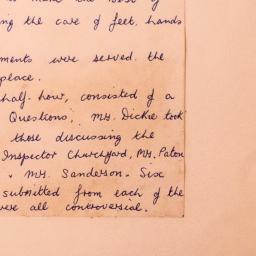 to make the best of
ing the care of feet, hands
ments were served. the
place.
half-hour, consisted of a
Questions; Mrs. Dickie took
those discussing the
Inspector Churchyard, Mrs. Paton
. Mrs. Sanderson. Six
submitted from each of the
were all controversial.